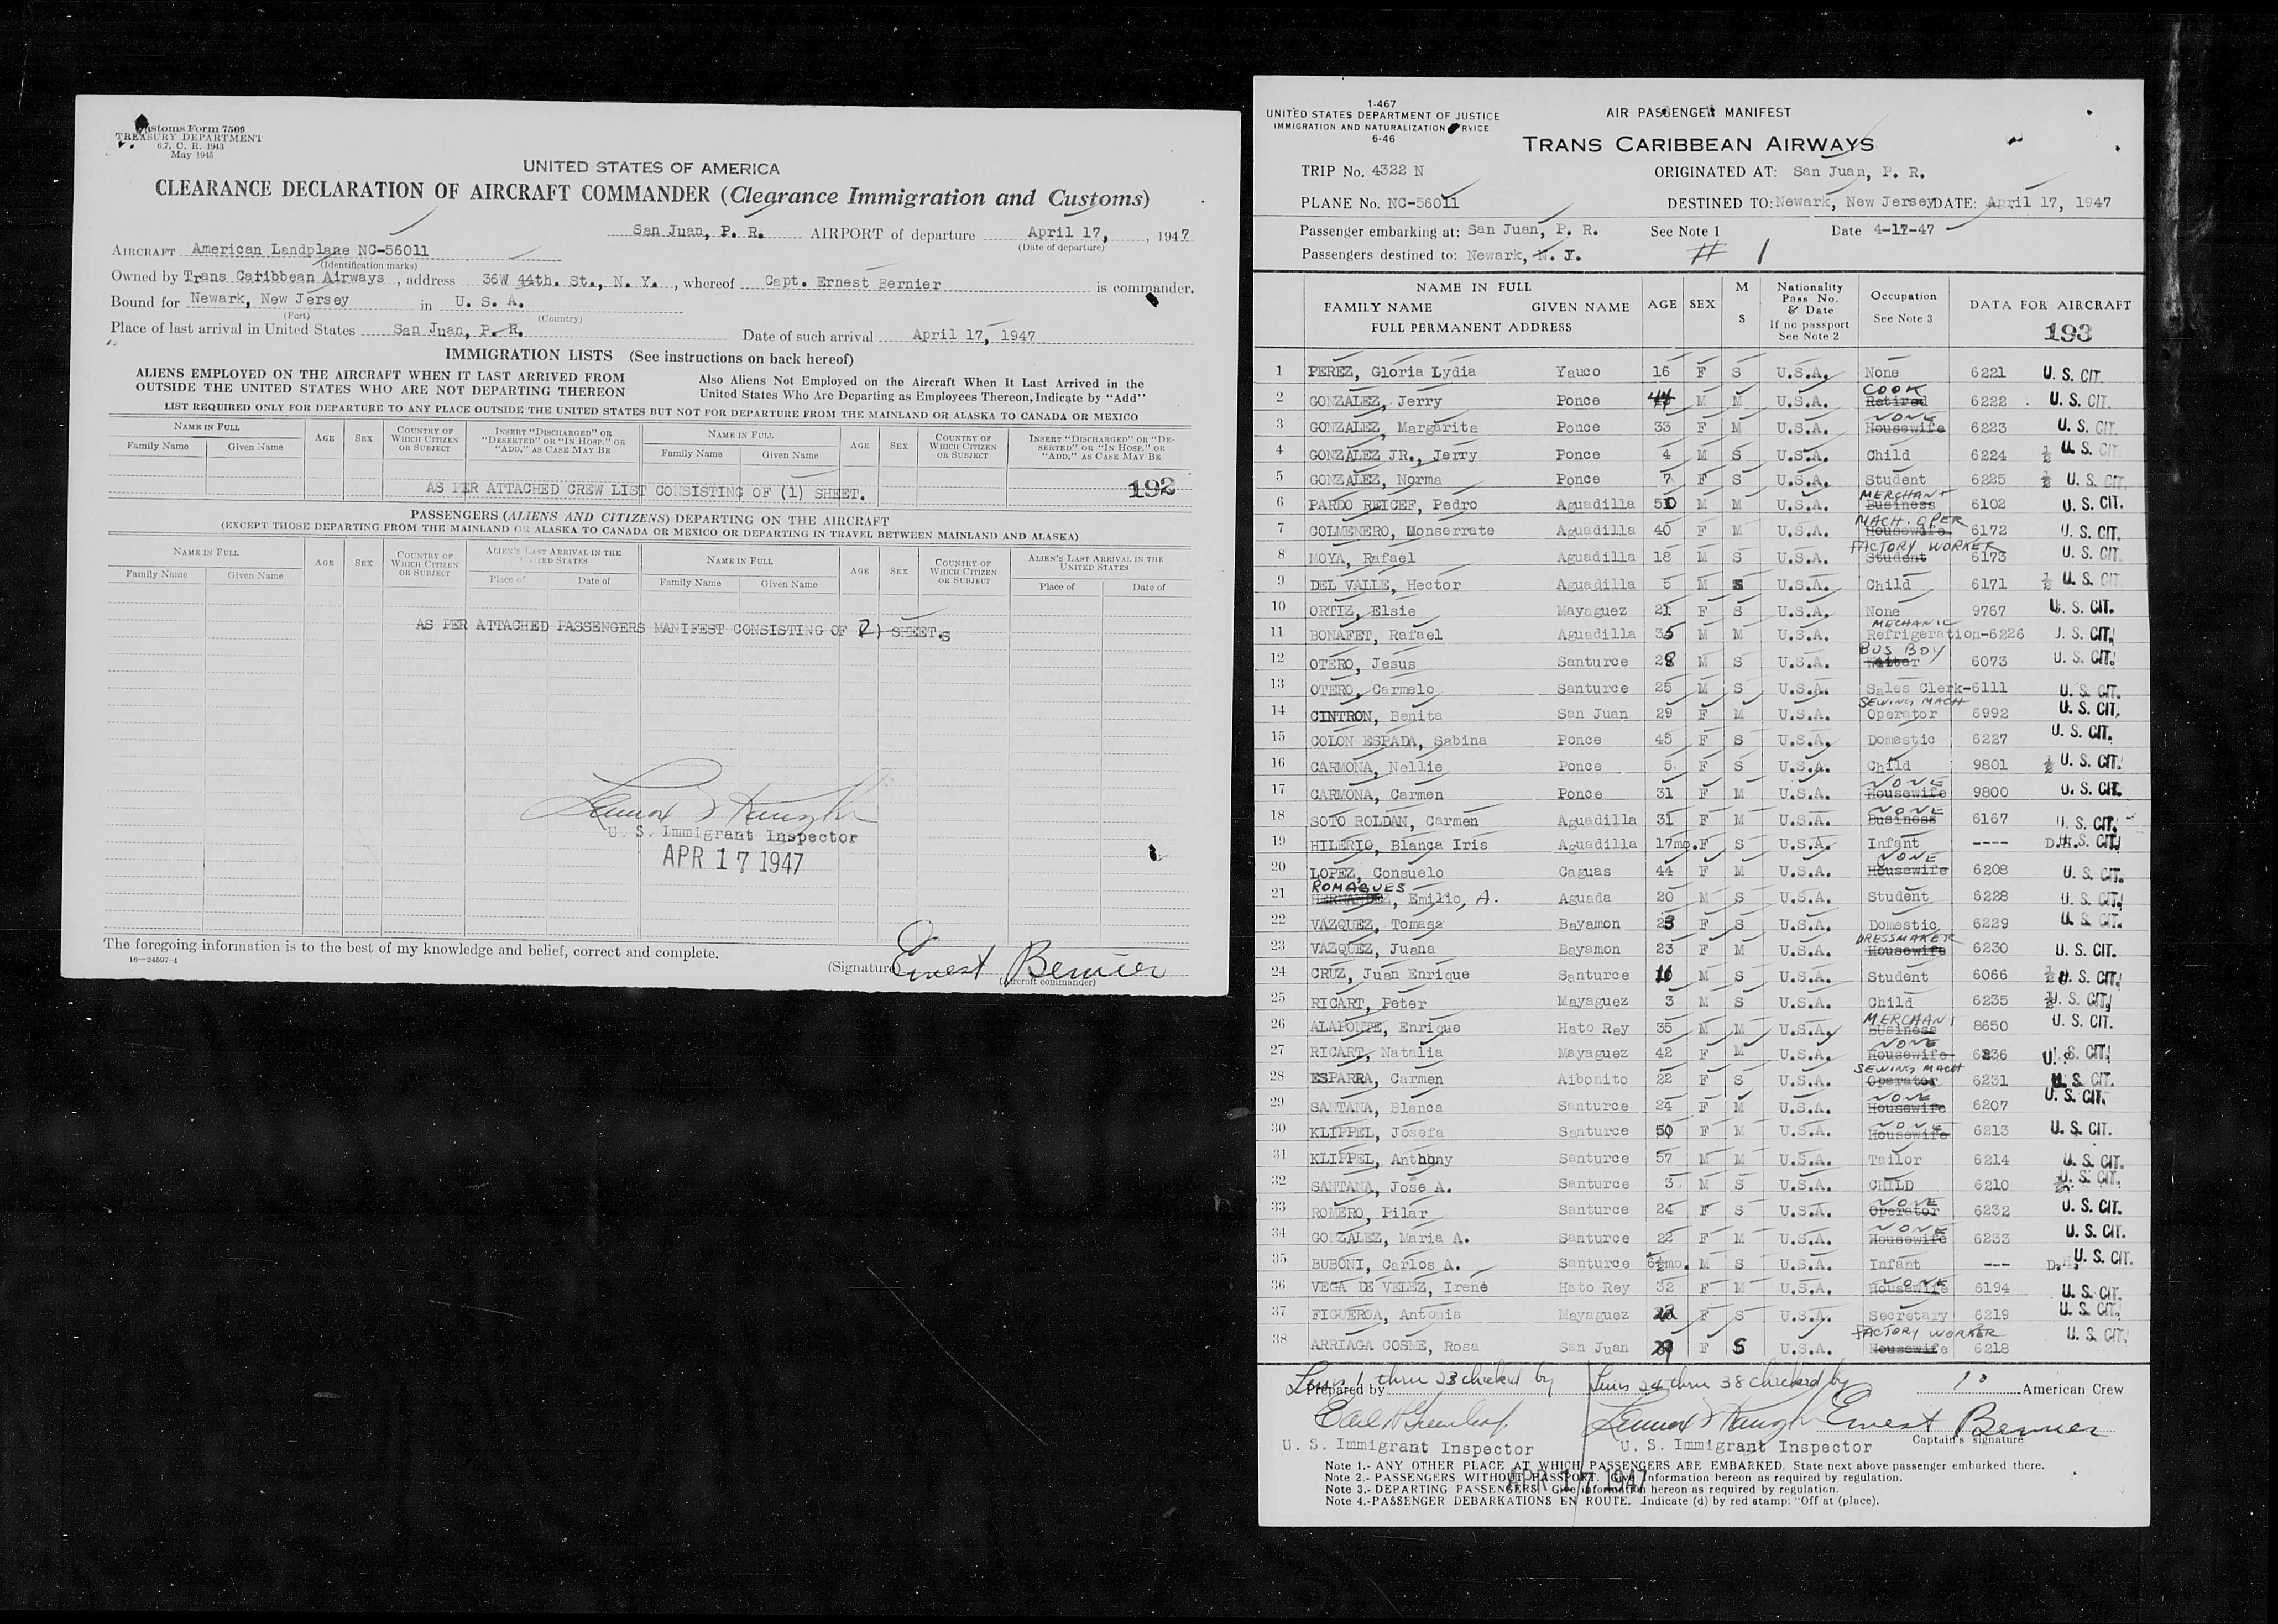 Customs Form 7509
TREASURY DEPARTMENT
6.7, C. R. 1943
May 1945
UNITED STATES OF AMERICA
CLEARANCE DECLARATION OF AIRCRAFT COMMANDER (Clearance Immigration and Customs)
San Juan, P. R. AIRPORT of departure April 17, , 1947
(Date of departure)
AIRCRAFT American Landplane NC-56011
(Identification marks)
Owned by Trans Caribbean Airways , address 36W 44th. St., N. Y. , whereof Capt. Ernest Bernier is commander.
Bound for Newark, New Jersey in U. S. A.
(Port) (Country)
Place of last arrival in United States San Juan, P. R. Date of such arrival April 17, 1947
IMMIGRATION LISTS (See instructions on back hereof)
ALIENS EMPLOYED ON THE AIRCRAFT WHEN IT LAST ARRIVED FROM OUTSIDE THE UNITED STATES WHO ARE NOT DEPARTING THEREON
Also Aliens Not Employed on the Aircraft When It Last Arrived in the United States Who Are Departing as Employees Thereon, Indicate by "Add"
LIST REQUIRED ONLY FOR DEPARTURE TO ANY PLACE OUTSIDE THE UNITED STATES BUT NOT FOR DEPARTURE FROM THE MAINLAND OR ALASKA TO CANADA OR MEXICO
NAME IN FULL AGE SEX COUNTRY OF WHICH CITIZEN OR SUBJECT INSERT "DISCHARGED" OR "DESERTED" OR "IN HOSP." OR "ADD," AS CASE MAY BE NAME IN FULL AGE SEX COUNTRY OF WHICH CITIZEN OR SUBJECT INSERT "DISCHARGED" OR "DESERTED" OR "IN HOSP." OR "ADD," AS CASE MAY BE
Family Name Given Name Family Name Given Name
AS PER ATTACHED CREW LIST CONSISTING OF (1) SHEET. 192
PASSENGERS (ALIENS AND CITIZENS) DEPARTING ON THE AIRCRAFT
(EXCEPT THOSE DEPARTING FROM THE MAINLAND OR ALASKA TO CANADA OR MEXICO OR DEPARTING IN TRAVEL BETWEEN MAINLAND AND ALASKA)
NAME IN FULL AGE SEX COUNTRY OF WHICH CITIZEN OR SUBJECT ALIEN'S LAST ARRIVAL IN THE UNITED STATES NAME IN FULL AGE SEX COUNTRY OF WHICH CITIZEN OR SUBJECT ALIEN'S LAST ARRIVAL IN THE UNITED STATES
Family Name Given Name Place of Date of Family Name Given Name Place of Date of
AS PER ATTACHED PASSENGERS MANIFEST CONSISTING OF 2) SHEET.s
U. S. Immigrant Inspector
APR 17 1947
The foregoing information is to the best of my knowledge and belief, correct and complete.
16—24597-1
(Signature) Ernest Bernier
(Aircraft commander)
1-467
UNITED STATES DEPARTMENT OF JUSTICE
IMMIGRATION AND NATURALIZATION SERVICE
6-46
AIR PASSENGER MANIFEST
TRANS CARIBBEAN AIRWAYS
TRIP No. 4322 N ORIGINATED AT: San Juan, P. R.
PLANE No. NC-56011 DESTINED TO: Newark, New Jersey DATE: April 17, 1947
Passenger embarking at: San Juan, P. R. See Note 1 Date 4-17-47
Passengers destined to: Newark, N. J. # 1
NAME IN FULL
FAMILY NAME GIVEN NAME AGE SEX M S Nationality Pass No. & Date If no passport See Note 2 Occupation See Note 3 DATA FOR AIRCRAFT
FULL PERMANENT ADDRESS 193
1 PEREZ, Gloria Lydia Yauco 16 F S U.S.A. None 6221 U. S. CIT.
2 GONZALEZ, Jerry Ponce 44 M M U.S.A. Retired COOK 6222 U. S. CIT.
3 GONZALEZ, Margarita Ponce 33 F M U.S.A. Housewife NONE 6223 U. S. CIT.
4 GONZALEZ JR., Jerry Ponce 4 M S U.S.A. Child 6224 ½ U. S. CIT.
5 GONZALEZ, Norma Ponce 7 F S U.S.A. Student 6225 ½ U. S. CIT.
6 PARDO REICEF, Pedro Aguadilla 50 M M U.S.A. Business MERCHANT 6102 U. S. CIT.
7 COLMENERO, Monserrate Aguadilla 40 F M U.S.A. Housewife MACH. OPER 6172 U. S. CIT.
8 MOYA, Rafael Aguadilla 18 M S U.S.A. Student FACTORY WORKER 6173 U. S. CIT.
9 DEL VALLE, Hector Aguadilla 5 M S U.S.A. Child 6171 ½ U. S. CIT.
10 ORTIZ, Elsie Mayaguez 21 F S U.S.A. None 9767 U. S. CIT.
11 BONAFET, Rafael Aguadilla 36 M M U.S.A. Refrigeration MECHANIC -6226 U. S. CIT.
12 OTERO, Jesus Santurce 28 M S U.S.A. Waiter BUS BOY 6073 U. S. CIT.
13 OTERO, Carmelo Santurce 25 M S U.S.A. Sales Clerk-6111 U. S. CIT.
14 CINTRON, Benita San Juan 29 F M U.S.A. SEWING MACH Operator 6992 U. S. CIT.
15 COLON ESPADA, Sabina Ponce 45 F S U.S.A. Domestic 6227 U. S. CIT.
16 CARMONA, Nellie Ponce 5 F S U.S.A. Child 9801 ½ U. S. CIT.
17 CARMONA, Carmen Ponce 31 F M U.S.A. Housewife NONE 9800 U. S. CIT.
18 SOTO ROLDAN, Carmen Aguadilla 31 F M U.S.A. Business NONE 6167 U. S. CIT.
19 HILERIO, Blanca Iris Aguadilla 17mo. F S U.S.A. Infant ---- D.H. U.S. CIT.
20 LOPEZ, Consuelo Caguas 44 F M U.S.A. Housewife NONE 6208 U. S. CIT.
21 HERNANDEZ ROMAGUES, Emilio, A. Aguada 20 M S U.S.A. Student 6228 U. S. CIT.
22 VAZQUEZ, Tomasa Bayamon 23 F S U.S.A. Domestic 6229 U. S. CIT.
23 VAZQUEZ, Juana Bayamon 23 F M U.S.A. Housewife DRESSMAKER 6230 U. S. CIT.
24 CRUZ, Juan Enrique Santurce M S U.S.A. Student 6066 ½ U. S. CIT.
25 RICART, Peter Mayaguez 3 M S U.S.A. Child 6235 ½ U. S. CIT.
26 ALAPONTE, Enrique Hato Rey 35 M M U.S.A. Business MERCHANT 8650 U. S. CIT.
27 RICART, Natalia Mayaguez 42 F M U.S.A. Housewife NONE 6236 U. S. CIT.
28 ESPARRA, Carmen Aibonito 22 F S U.S.A. SEWING MACH Operator 6231 U. S. CIT.
29 SANTANA, Blanca Santurce 24 F M U.S.A. Housewife NONE 6207 U. S. CIT.
30 KLIPPEL, Josefa Santurce 50 F M U.S.A. Housewife NONE 6213 U. S. CIT.
31 KLIPPEL, Anthony Santurce 57 M M U.S.A. Tailor 6214 U. S. CIT.
32 SANTANA, Jose A. Santurce 3 M S U.S.A. CHILD 6210 ½ U. S. CIT.
33 ROMERO, Pilar Santurce 24 F S U.S.A. Operator NONE 6232 U. S. CIT.
34 GONZALEZ, Maria A. Santurce 22 F M U.S.A. Housewife NONE 6233 U. S. CIT.
35 BUBONI, Carlos A. Santurce 6½mo. M S U.S.A. Infant --- D.H. U. S. CIT.
36 VEGA DE VELEZ, Irene Hato Rey 32 F M U.S.A. Housewife NONE 6194 U. S. CIT.
37 FIGUEROA, Antonia Mayaguez F S U.S.A. Secretary 6219 U. S. CIT.
38 ARRIAGA COSME, Rosa San Juan F S U.S.A. Housewife FACTORY WORKER 6218 U. S. CIT.
Lines 1 thru 23 checked by Lines 24 thru 38 checked by
Prepared by American Crew
Ernest Bernier
U. S. Immigrant Inspector U. S. Immigrant Inspector Captain's signature
APR 17 1947
Note 1.- ANY OTHER PLACE AT WHICH PASSENGERS ARE EMBARKED. State next above passenger embarked there.
Note 2.- PASSENGERS WITHOUT PASSPORT. Give information hereon as required by regulation.
Note 3.- DEPARTING PASSENGERS. Give information hereon as required by regulation.
Note 4.-PASSENGER DEBARKATIONS EN ROUTE. Indicate (d) by red stamp: "Off at (place).